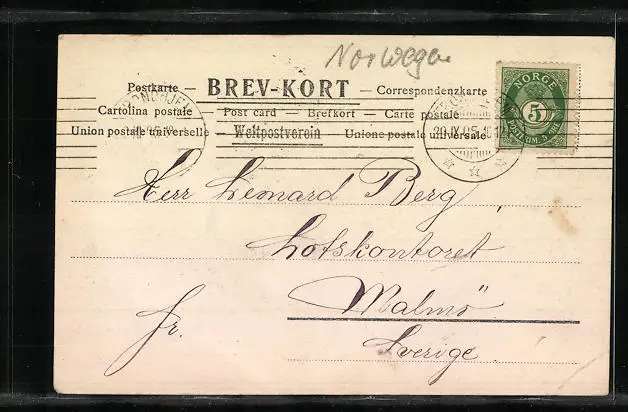 Norwegen
Postkarte — BREV-KORT — Correspondenzkarte
Cartolina postale — Post card — Brefkort — Carte postale
Union postale universelle — Weltpostverein — Unione postale universale
NORGE
5
20 IX 05
Herr Lennard Berg
Lotskontoret
Malmö
fr.
Sverige